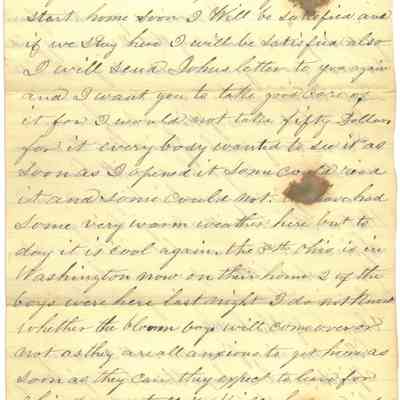 start home soon I Will be satisfied and
if we stay here I will be satisfied also
I will send Johns letter to you again
and I want you to take good care of
it for I would not take fifty Dollars
for it every body wanted to see it as
soon as I opened it some could read
it and some could not. we have had
some very warm weather here but to
day it is cool again. the 8th Ohio is in
Washington now on their home 2 of the
boys were here last night I do not know
whether the bloom boys will come over or
not as they are all anxious to get home as
soon as they can they expect to leave for